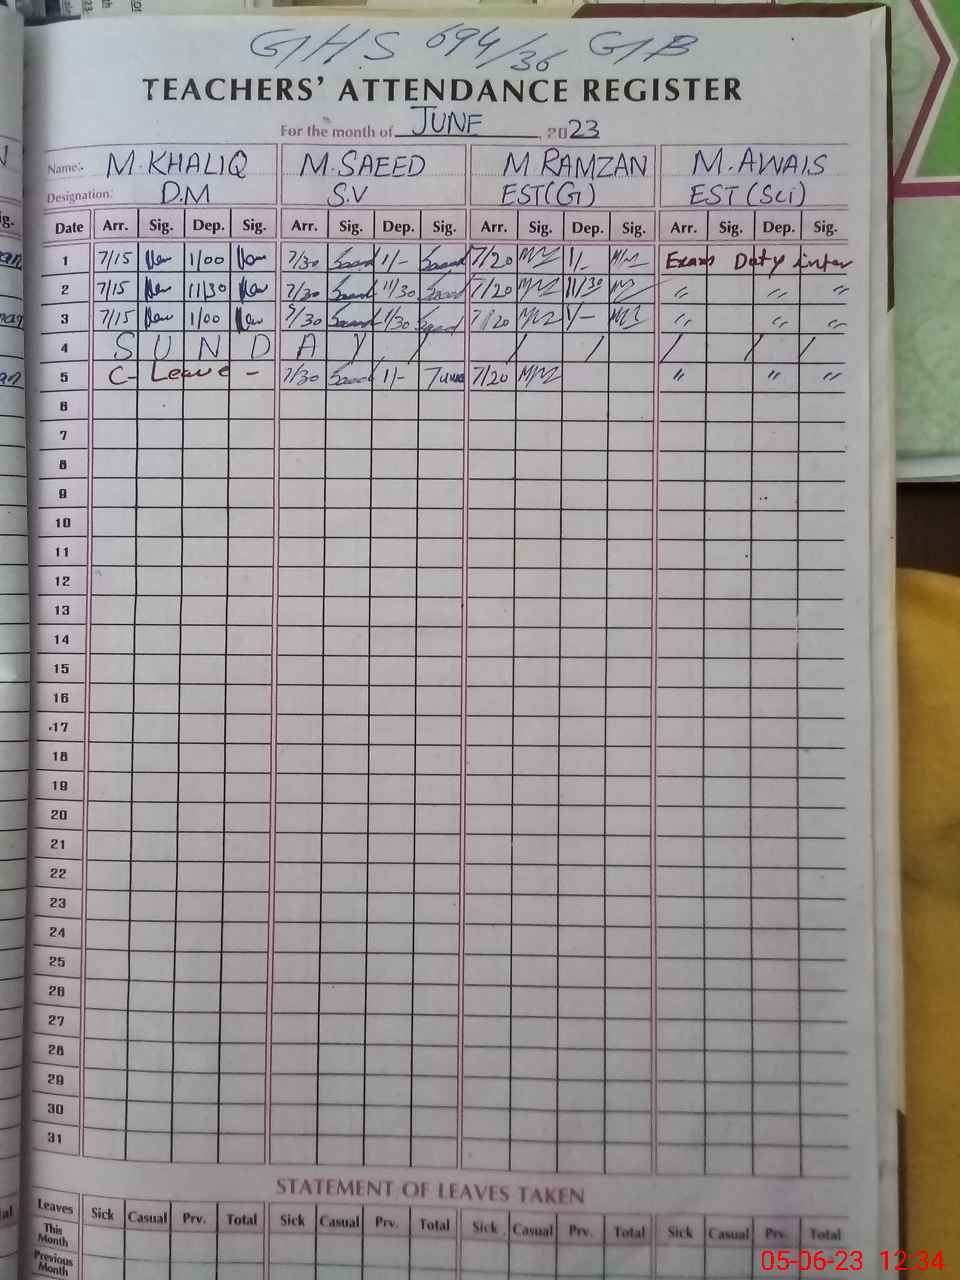 GHS 694/36 GB
TEACHERS' ATTENDANCE REGISTER
For the month of JUNE, 2023
Name: M. KHALIQ M. SAEED M RAMZAN M. AWAIS
Designation: D.M S.V EST(G) EST (Sci)
Date Arr. Sig. Dep. Sig. Arr. Sig. Dep. Sig. Arr. Sig. Dep. Sig. Arr. Sig. Dep. Sig.
1 7/15 1/00 7/30 Saeed 1/- Saeed 7/20 1/- Exam Duty inter
2 7/15 11/30 7/30 Saeed 11/30 Saeed 7/20 11/30 " " "
3 7/15 1/00 7/30 Saeed Saeed 7/20 1/- " " "
4 S U N D A Y / / / / / /
5 C- Leave - 7/30 Saeed 1/- 7/20 " " "
6
7
8
9
10
11
12
13
14
15
16
17
18
19
20
21
22
23
24
25
26
27
28
29
30
31
STATEMENT OF LEAVES TAKEN
Leaves Sick Casual Prv. Total Sick Casual Prv. Total Sick Casual Prv. Total Sick Casual Prv. Total
This Month
Previous Month
05-06-23 12:34